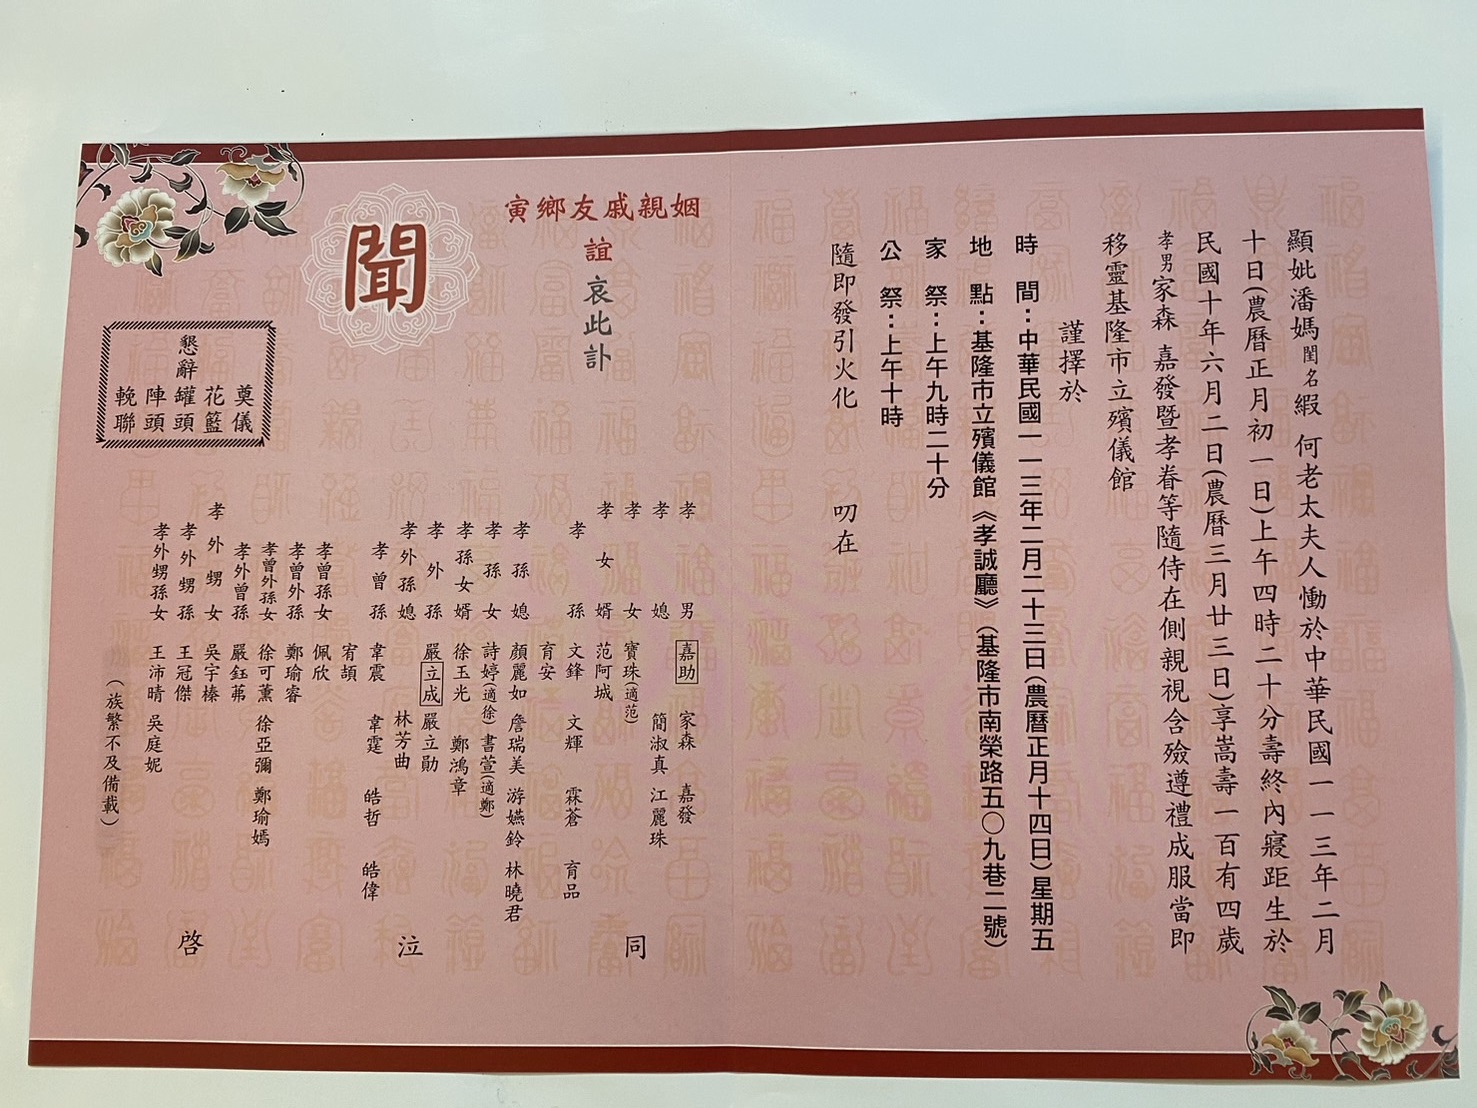 顯妣潘媽閨名緞 何老太夫人慟於中華民國一一三年二月
十日(農曆正月初一日)上午四時二十分壽終內寢距生於
民國十年六月二日(農曆三月廿三日)享嵩壽一百有四歲
孝男家森 嘉發暨孝眷等隨侍在側親視含殮遵禮成服當即
移靈基隆市立殯儀館
謹擇於
時 間：中華民國一一三年二月二十三日(農曆正月十四日)星期五
地 點：基隆市立殯儀館《孝誠廳》(基隆市南榮路五〇九巷二號)
家 祭：上午九時二十分
公 祭：上午十時
隨即發引火化 叨在
姻親戚友鄉寅
誼
哀此訃
聞
孝男 嘉助 家森 嘉發
孝媳 簡淑真 江麗珠
孝女 寶珠(適范)
孝女婿 范阿城
孝孫 文鋒 文輝 霖蒼 育品
育安
孝孫媳 顏麗如 詹瑞美 游嬿鈴 林曉君
孝孫女 詩婷(適徐) 書萱(適鄭)
孝孫女婿 徐玉光 鄭鴻章
孝外孫 嚴立成 嚴立勛
孝外孫媳 林芳曲
孝曾孫 韋震 韋霆 皓哲 皓偉
宥頡
孝曾孫女 佩欣
孝曾外孫 鄭瑜睿
孝曾外孫女 徐可薰 徐亞彌 鄭瑜嫣
孝外曾孫 嚴鈺茀
孝外甥女 吳宇榛
孝外甥孫 王冠傑
孝外甥孫女 王沛晴 吳庭妮
(族繁不及備載)
同
泣
啓
懇辭
奠儀
花籃
罐頭
陣頭
輓聯